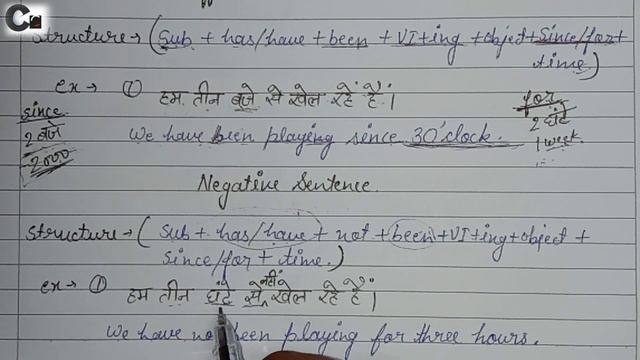 Structure→ (Sub + has/have + been + VI+ing +object+Since/for+
time.)
ex→ ① हम तीन बजे से खेल रहें हैं।
since
2 बजे
2000
for
2 घंटे
1 week.
We have been playing since 30'clock.
Negative Sentence.
Structure→ (Sub + has/have + not + been +VI+ing+object +
since/for + time.)
ex→ ① हम तीन घंटे से नहीं खेल रहे हैं।
We have not been playing for three hours.